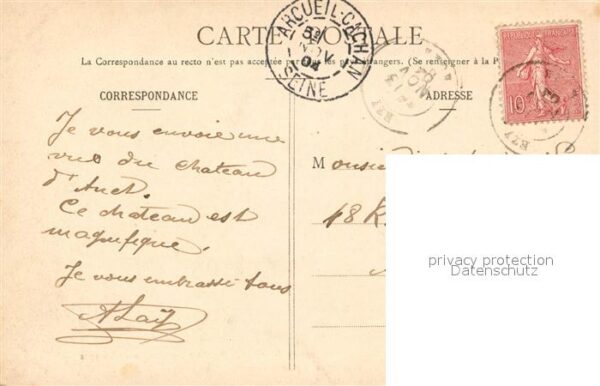 CARTE POSTALE
La Correspondance au recto n'est pas acceptée par tous les pays étrangers. (Se renseigner à la P
CORRESPONDANCE
ADRESSE
ARCUEIL-CACHAN
NOV
04
SEINE
REPUBLIQUE FRANÇAISE
10
Je vous envoie une
vue du chateau
d'Anet.
Ce chateau est
magnifique.
Je vous embrasse tous
Monsie
18
privacy protection
Datenschutz